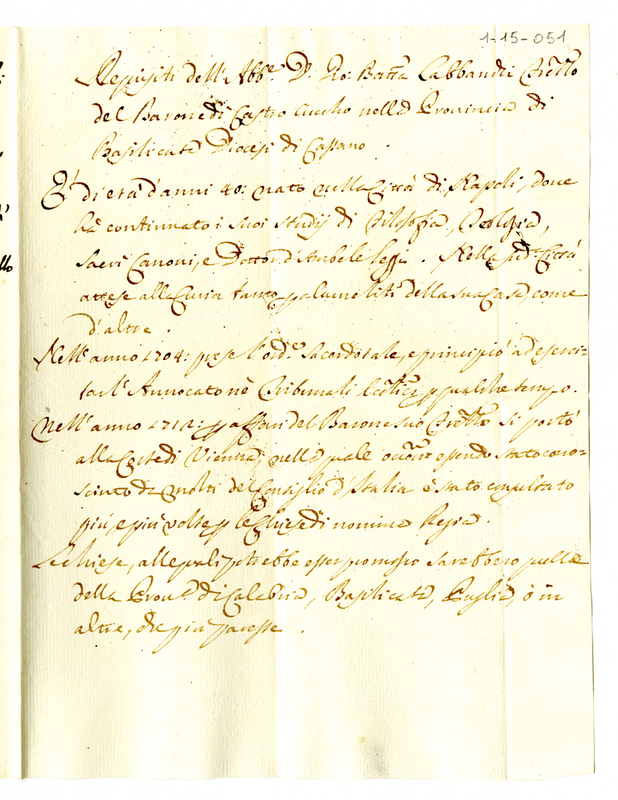 1-15-051
Requisiti dell'Abb.e D. Gio: Batta Labbandi fr̃ello
del Barone di Castro Cuccho nella Provincia di
Basilicata Diocesi di Cassano.
È di età d'anni 40: nato nella Città di Napoli, dove
hà continuato i suoi studij di Filosofia, Teologia,
Sacri Canoni, e Dottor d'Ambe le leggi. Nella sud.a Città
attese alla Curia tanto p alcune liti della sua Casa, come
d'altre.
Nell'anno 1704: prese l'ord.e Sacerdotale, e principiò ad eserci-
tar l'Avvocato nè Tribunali p qualche tempo.
Nell'anno 1712: p affari del Barone suo si portò
alla Corte di Vienna, nella quale occ.ne essendo stato cono-
sciuto da molti del Consiglio d'Italia è stato consultato
più, e più volte p le Chiese di nomina Regia.
Le Chiese, alle quali potrebbe esser promosso sarebbero quelle
della Prov.a di Calabria, Basilicata, Puglia, ò in
altre, che più paresse.